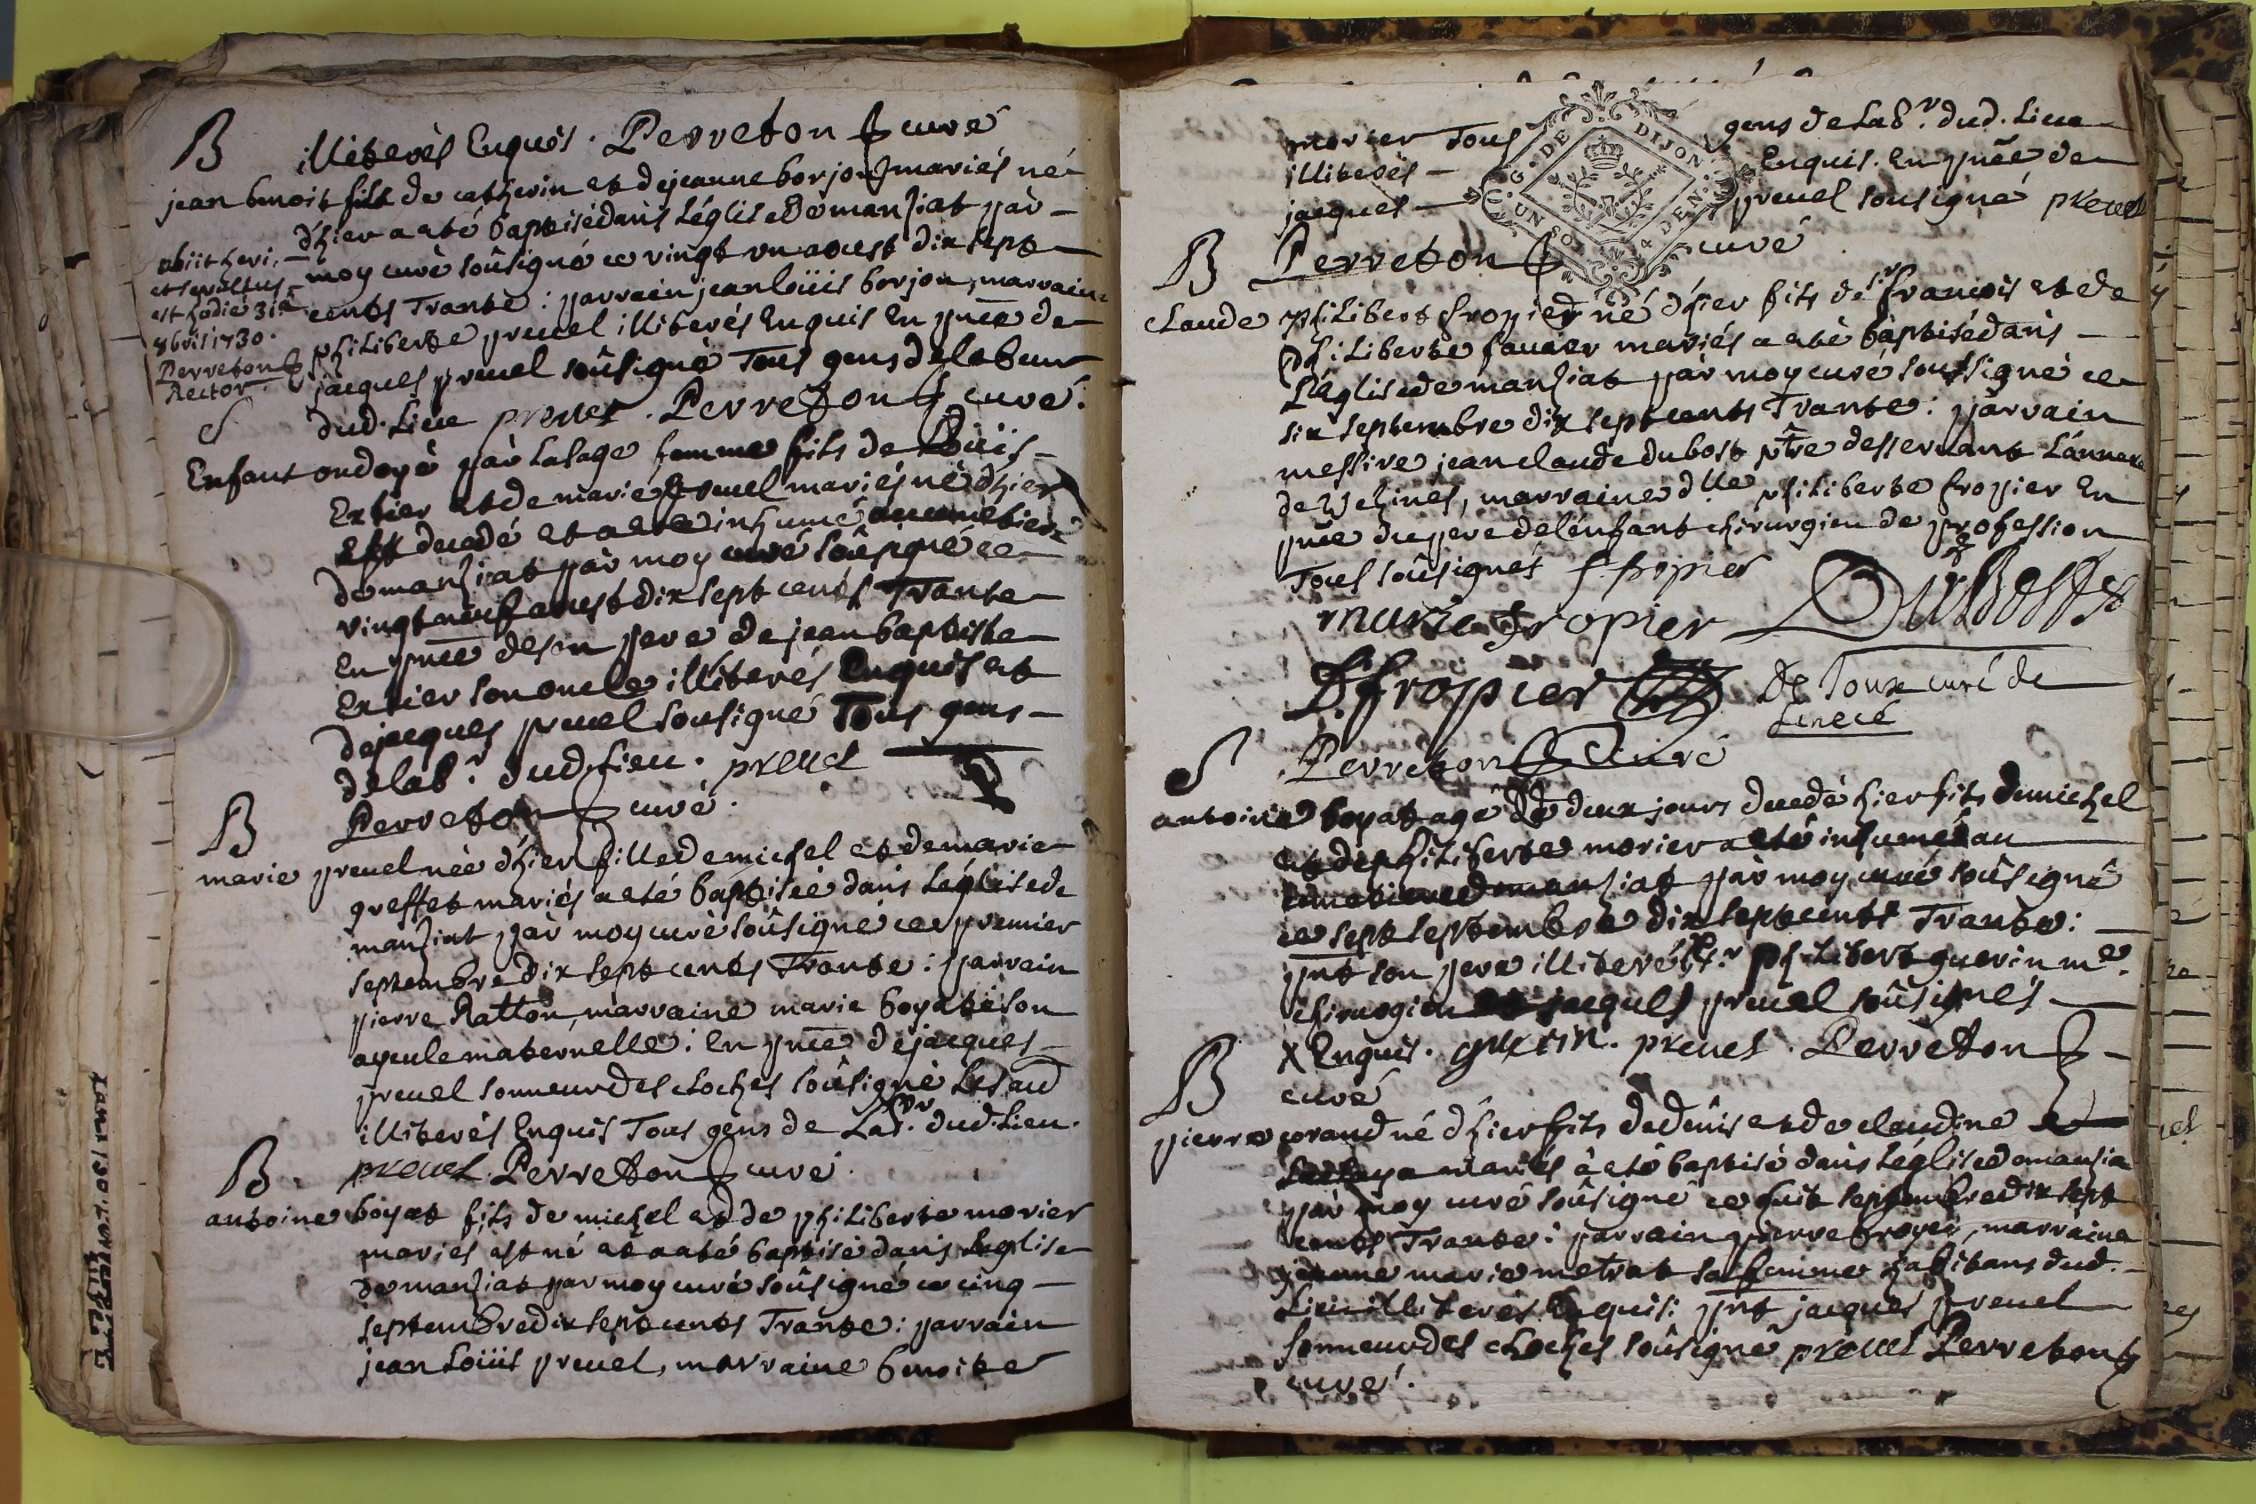 B illiterés Enquis. Perreton curé
jean benoit fils de catherin et de jeanne borjon mariés né
d'hier a eté baptisé dans L'église de manziat par
moy curé soûsigné ce vingt un aoust dix sept
cents Trante: parrain jean loüis borjon, marraine
philiberte preuel illiterés Enquis En pnce de
jacques preuel soûsigné Tous gens de labeur
dud. Lieu preuel. Perreton curé.
obiit heri,
et sepultus
est hodie 31a
8bris 1730.
Perreton
Rector
S
Enfant ondoyé par la sage femme fils de Loüis
Extier et de marie preuel mariés né d'hier
est decedé et a eté inhumé au cimetiere
de manziat par moy curé soûsigné ce
vingt neuf aoust dix sept cents Trante
En pnce de son pere de jean baptiste
Extier son oncle illiterés Enquis et
de jacques preuel sousigné Tous gens
de labr. dud. Lieu. preuel
Perreton curé.
B
marie preuel née d'hier fille de michel et de marie
greffet mariés a eté baptisée dans L'église de
manziat par moy curé soûsigné ce premier
septembre dix sept cents Trante: parrain
pierre Ratton, marraine marie boyat son
ayeule maternelle: En pnce de jacques
preuel sonneur des cloches soûsigné
illiterés Enquis Tous gens de Labr. dud. Lieu.
preuel. Perreton curé.
B.
antoine boyat fils de michel et de philiberte morier
mariés est né et a eté baptisé dans L'eglise
de manziat par moy curé soûsigné ce cinq
septembre dix sept cents Trante: parrain
jean Loüis preuel, marraine benoite
morier Tous gens de Labr. dud. Lieu
illiterés Enquis. En pnce de
jacques preuel sousigné preuel
Perreton curé
G. DE DIJON
UN SOL 4 DEN.
B
claude philibert fropier né d'hier fils de Sr françois et de
philiberte fauier mariés a eté baptisé dans
L'église de manziat par moy curé soussigné ce
six septembre dix sept cents Trante: parrain
messire jean claude dubost ptre desservant L'annexe
de Vesines, marraine dlle philiberte fropier En
pnce du pere de l'enfant chirurgien de profession
Tous soûsignés f. fropier
marie fropier Dubost
P. fropier De Toux curé de
Perreton curé
S
antoine boyat agé de deux jours decedé hier fils de michel
et de philiberte morier a eté inhumé au
cimetiere de manziat par moy curé soûsigné
ce sept septembre dix sept cents Trante:
pnt son pere illiteré X Sr philibert guerin me
chirurgien et jacques preuel soûsignés
X Enquis. guerin. preuel. Perreton
curé
B
pierre corand né d'hier fils de denis et de claudine
mariés a eté baptisé dans L'église de manzia
par moy curé soûsigné ce huit septembre dix sept
cents Trante: parrain pierre broyer, marraine
jeanne marie metrat sa femme habitans dud.
Lieu illiterés Enquis: pnt jacques preuel
sonneur des cloches soûsigné preuel Perreton
curé.